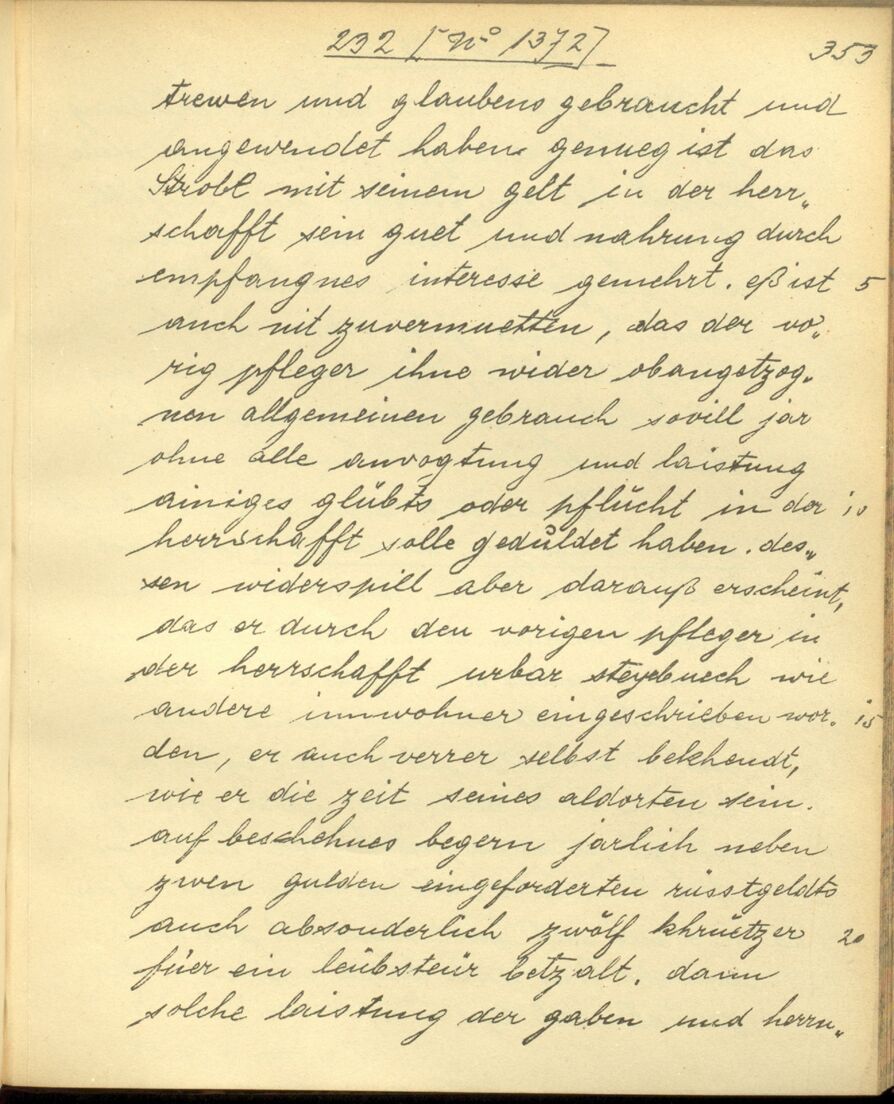 232 [No 1372]
353
trewen und glaubens gebraucht und
angewendet haben. genueg ist das
Strobl mit seinem gelt in der herr„
schafft sein guet und nahrung durch
empfangnes interesse gemehrt. eß ist 5
auch nit zuvermuetten, das der vo„
rig pfleger ihne wider obangetzog„
nen allgemeinen gebrauch sovill jar
ohne alle anvogtung und laistung
ainiges glübts oder pflücht in der 10
herrschafft solle geduldet haben. des„
sen widerspill aber darauß erscheint,
das er durch den vorigen pfleger in
der herrschafft urbar steyrbuech wie
andere innwohner eingeschrieben wor„ 15
den, er auch verrer selbst bekhendt,
wie er die zeit seines aldorten sein.
auf beschehnes begern jarlich neben
zwen gulden eingeforderten rüsstgeldts
auch absonderlich zwölf khrüetzer 20
füer ein leübsteür betzalt. dann
solche laistung der gaben und herrn„